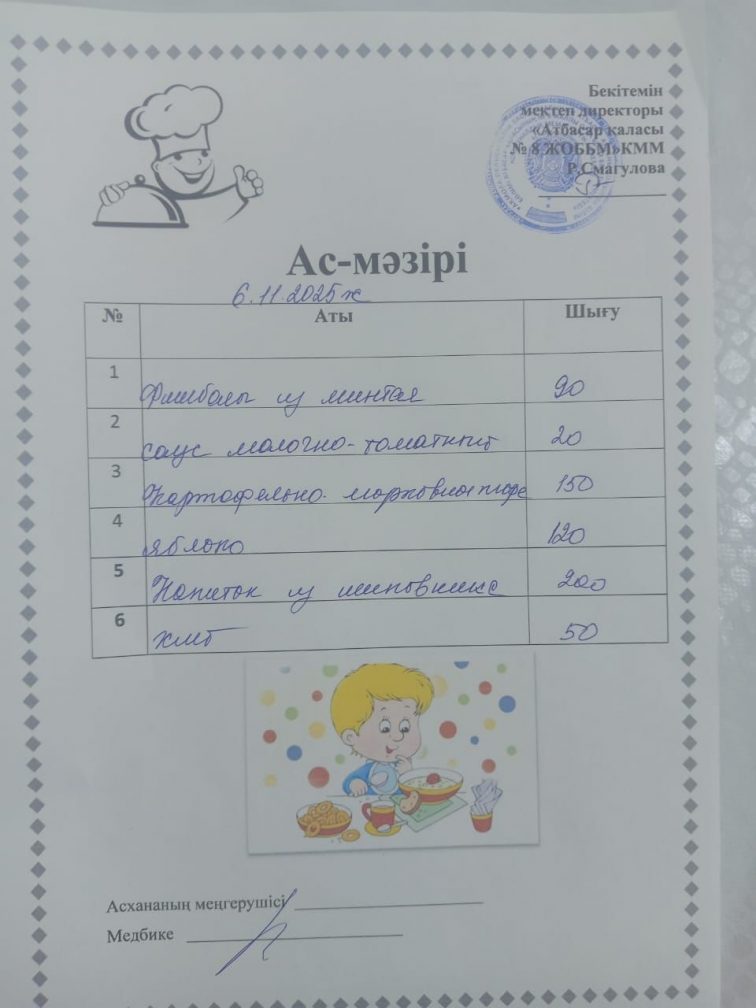 Бекітемін
мектеп директоры
«Атбасар қаласы
№ 8 ЖОББМ»КММ
Р.Смагулова
Ас-мәзірі
6.11.2025ж
№ Аты Шығу
1 Фишболы из минтая 90
2 соус молочно-томатный 20
3 Картофельно-морковное пюре 150
4 яблоко 120
5 Напиток из шиповника 200
6 хлеб 50
Асхананың меңгерушісі
Медбике